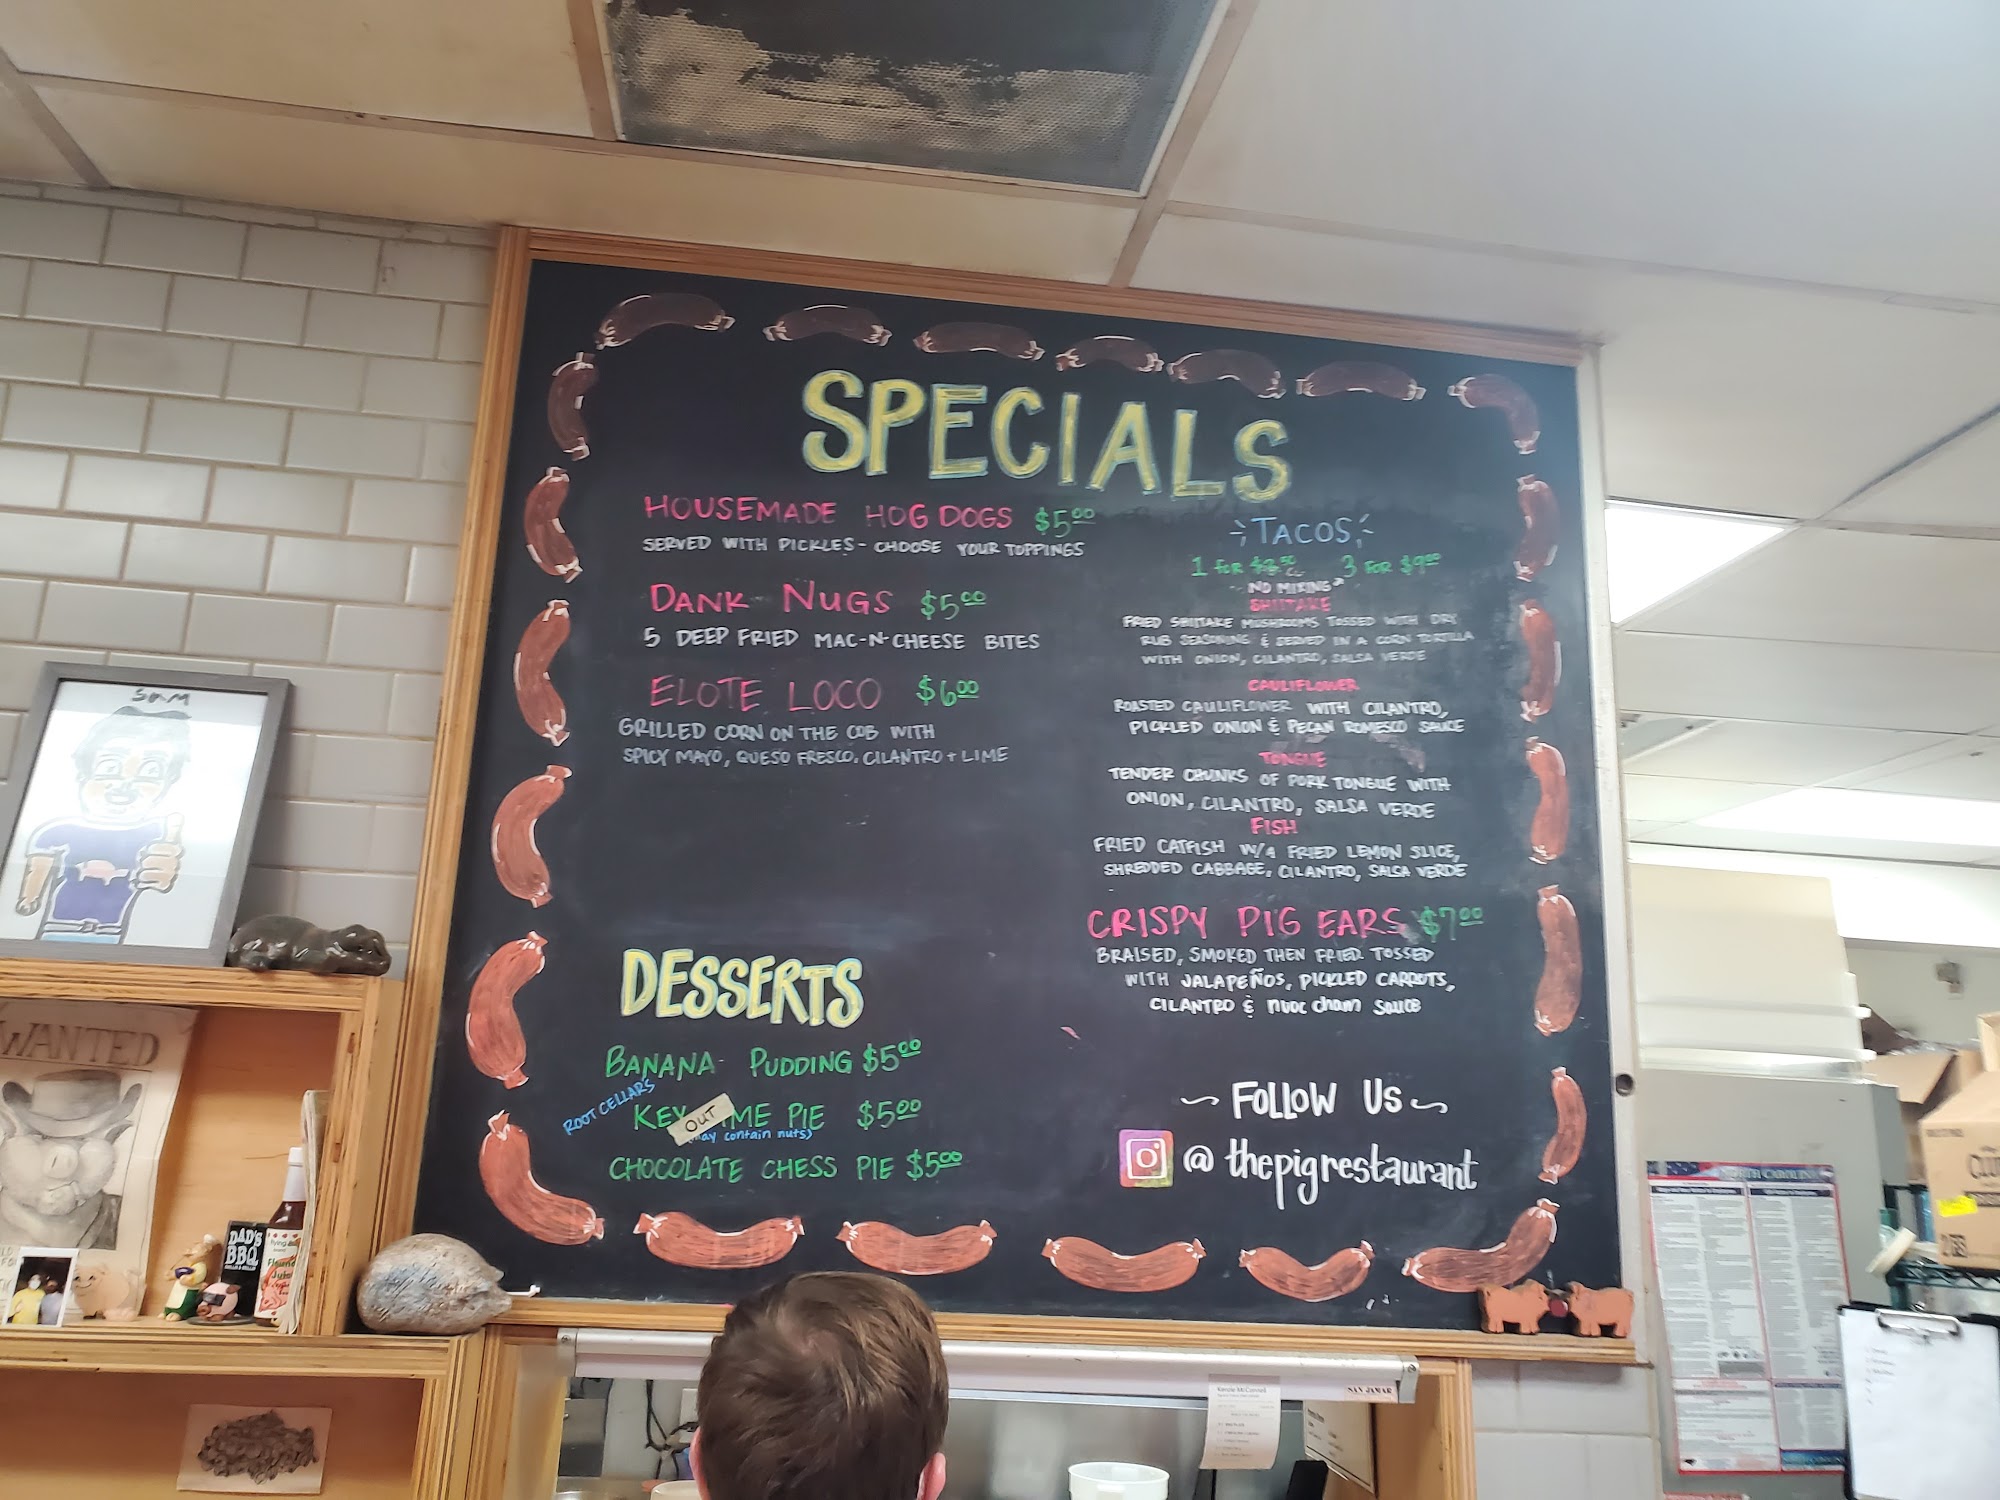 SPECIALS
HOUSEMADE HOG DOGS $5.00
SERVED WITH PICKLES - CHOOSE YOUR TOPPINGS
DANK NUGS $5.00
5 DEEP FRIED MAC-N-CHEESE BITES
ELOTE LOCO $6.00
GRILLED CORN ON THE COB WITH
SPICY MAYO, QUESO FRESCO, CILANTRO + LIME
TACOS
1 FOR $3.50 3 FOR $9.00
NO MIXING
SHIITAKE
FRIED SHIITAKE MUSHROOMS TOSSED WITH DRY
RUB SEASONING & SERVED IN A CORN TORTILLA
WITH ONION, CILANTRO, SALSA VERDE
CAULIFLOWER
ROASTED CAULIFLOWER WITH CILANTRO,
PICKLED ONION & PECAN ROMESCO SAUCE
TONGUE
TENDER CHUNKS OF PORK TONGUE WITH
ONION, CILANTRO, SALSA VERDE
FISH
FRIED CATFISH W/A FRIED LEMON SLICE,
SHREDDED CABBAGE, CILANTRO, SALSA VERDE
CRISPY PIG EARS $7.00
BRAISED, SMOKED THEN FRIED. TOSSED
WITH JALAPEÑOS, PICKLED CARROTS,
CILANTRO & nuoc cham sauce
DESSERTS
BANANA PUDDING $5.00
ROOT CELLARS
KEY OUT ME PIE $5.00
may contain nuts)
CHOCOLATE CHESS PIE $5.00
FOLLOW US
@thepigrestaurant
SAM
WANTED
DAD'S
BBQ
SAN JAMAR
Kenzie McConnell
NORTH CAROLINA